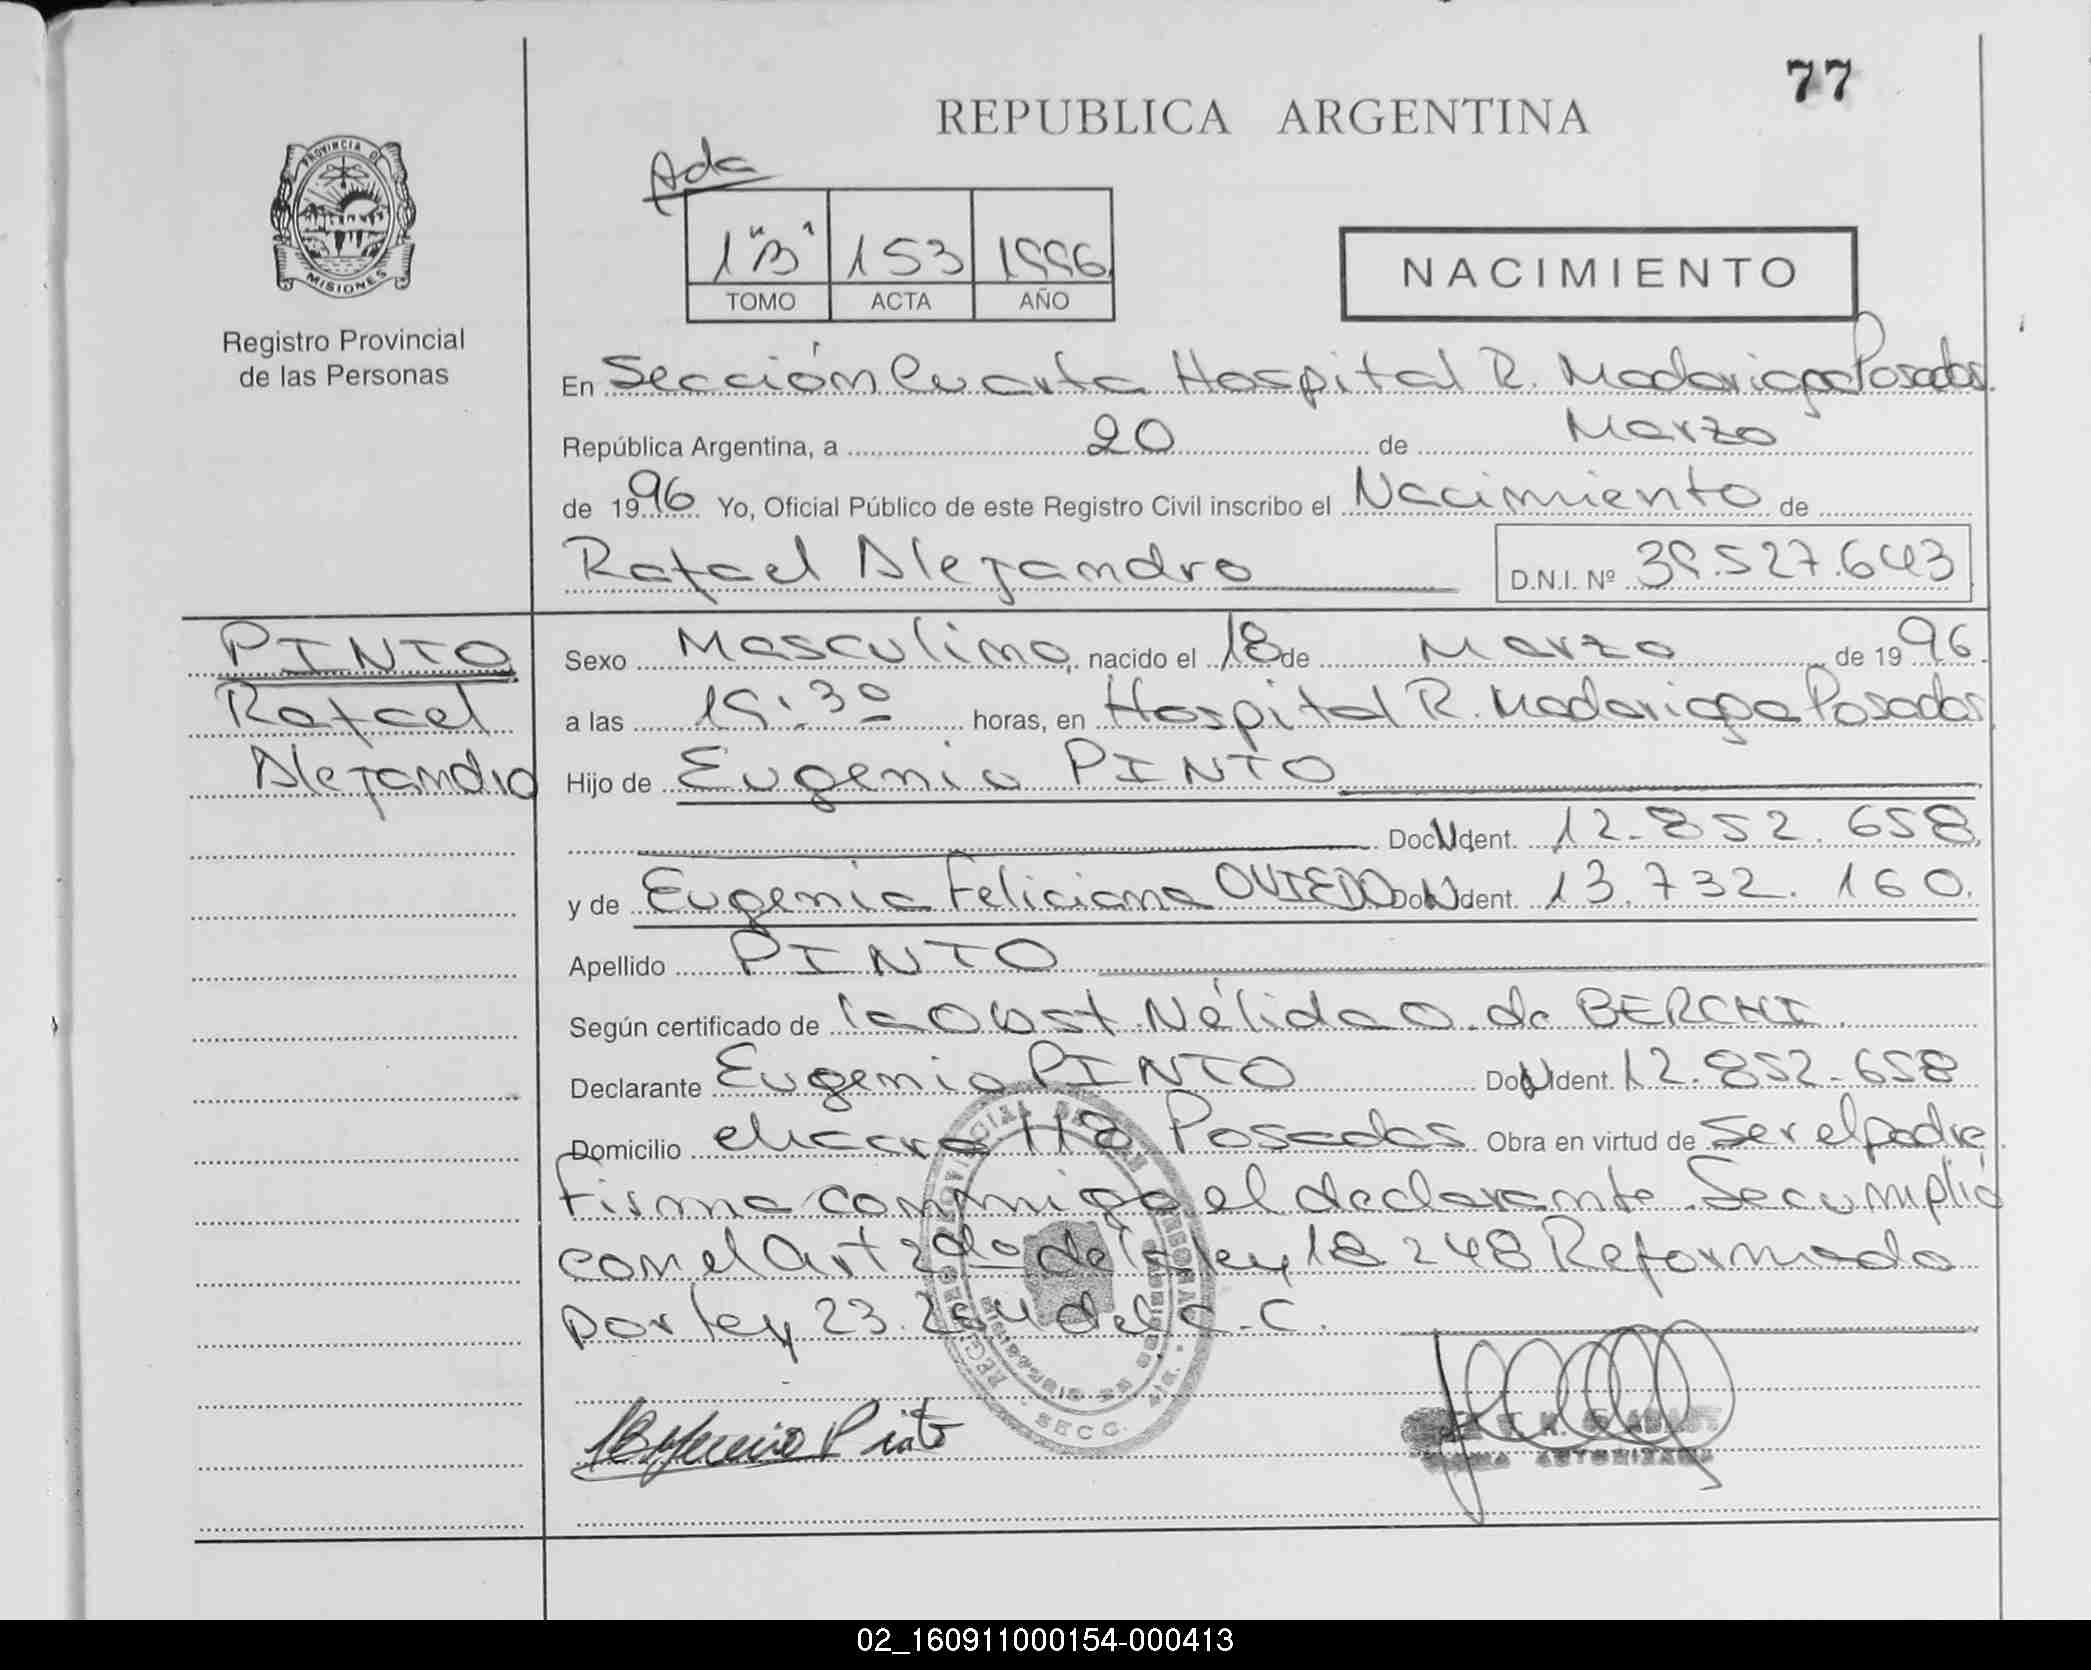 77
REPUBLICA ARGENTINA
PROVINCIA DE
MISIONES
Registro Provincial
de las Personas
Ada
1 "B" 153 1996
TOMO ACTA AÑO
NACIMIENTO
En Sección Cuarta Hospital R. Madariaga Posadas.
República Argentina, a 20 de Marzo
de 1996 Yo, Oficial Público de este Registro Civil inscribo el Nacimiento de
Rafael Alejandro D.N.I. Nº 39.527.643
PINTO
Rafael
Alejandro
Sexo Masculino, nacido el 18 de Marzo de 1996.
a las 19:30 horas, en Hospital R. Madariaga Posadas
Hijo de Eugenio PINTO
Doc. Ident. 12.852.658
y de Eugenia Feliciana OVIEDO Doc. Ident. 13.732.160.
Apellido PINTO
Según certificado de la Obst. Nélida O. de BERCHI.
Declarante Eugenio PINTO Doc. Ident. 12.852.658
Domicilio chacra 118 Posadas Obra en virtud de ser el padre.
Firma conmigo el declarante. Se cumplió
con el Art 2do de la ley 18248 Reformado
por ley 23.264 del C.C.
Pinto
SECC.
02_160911000154-000413